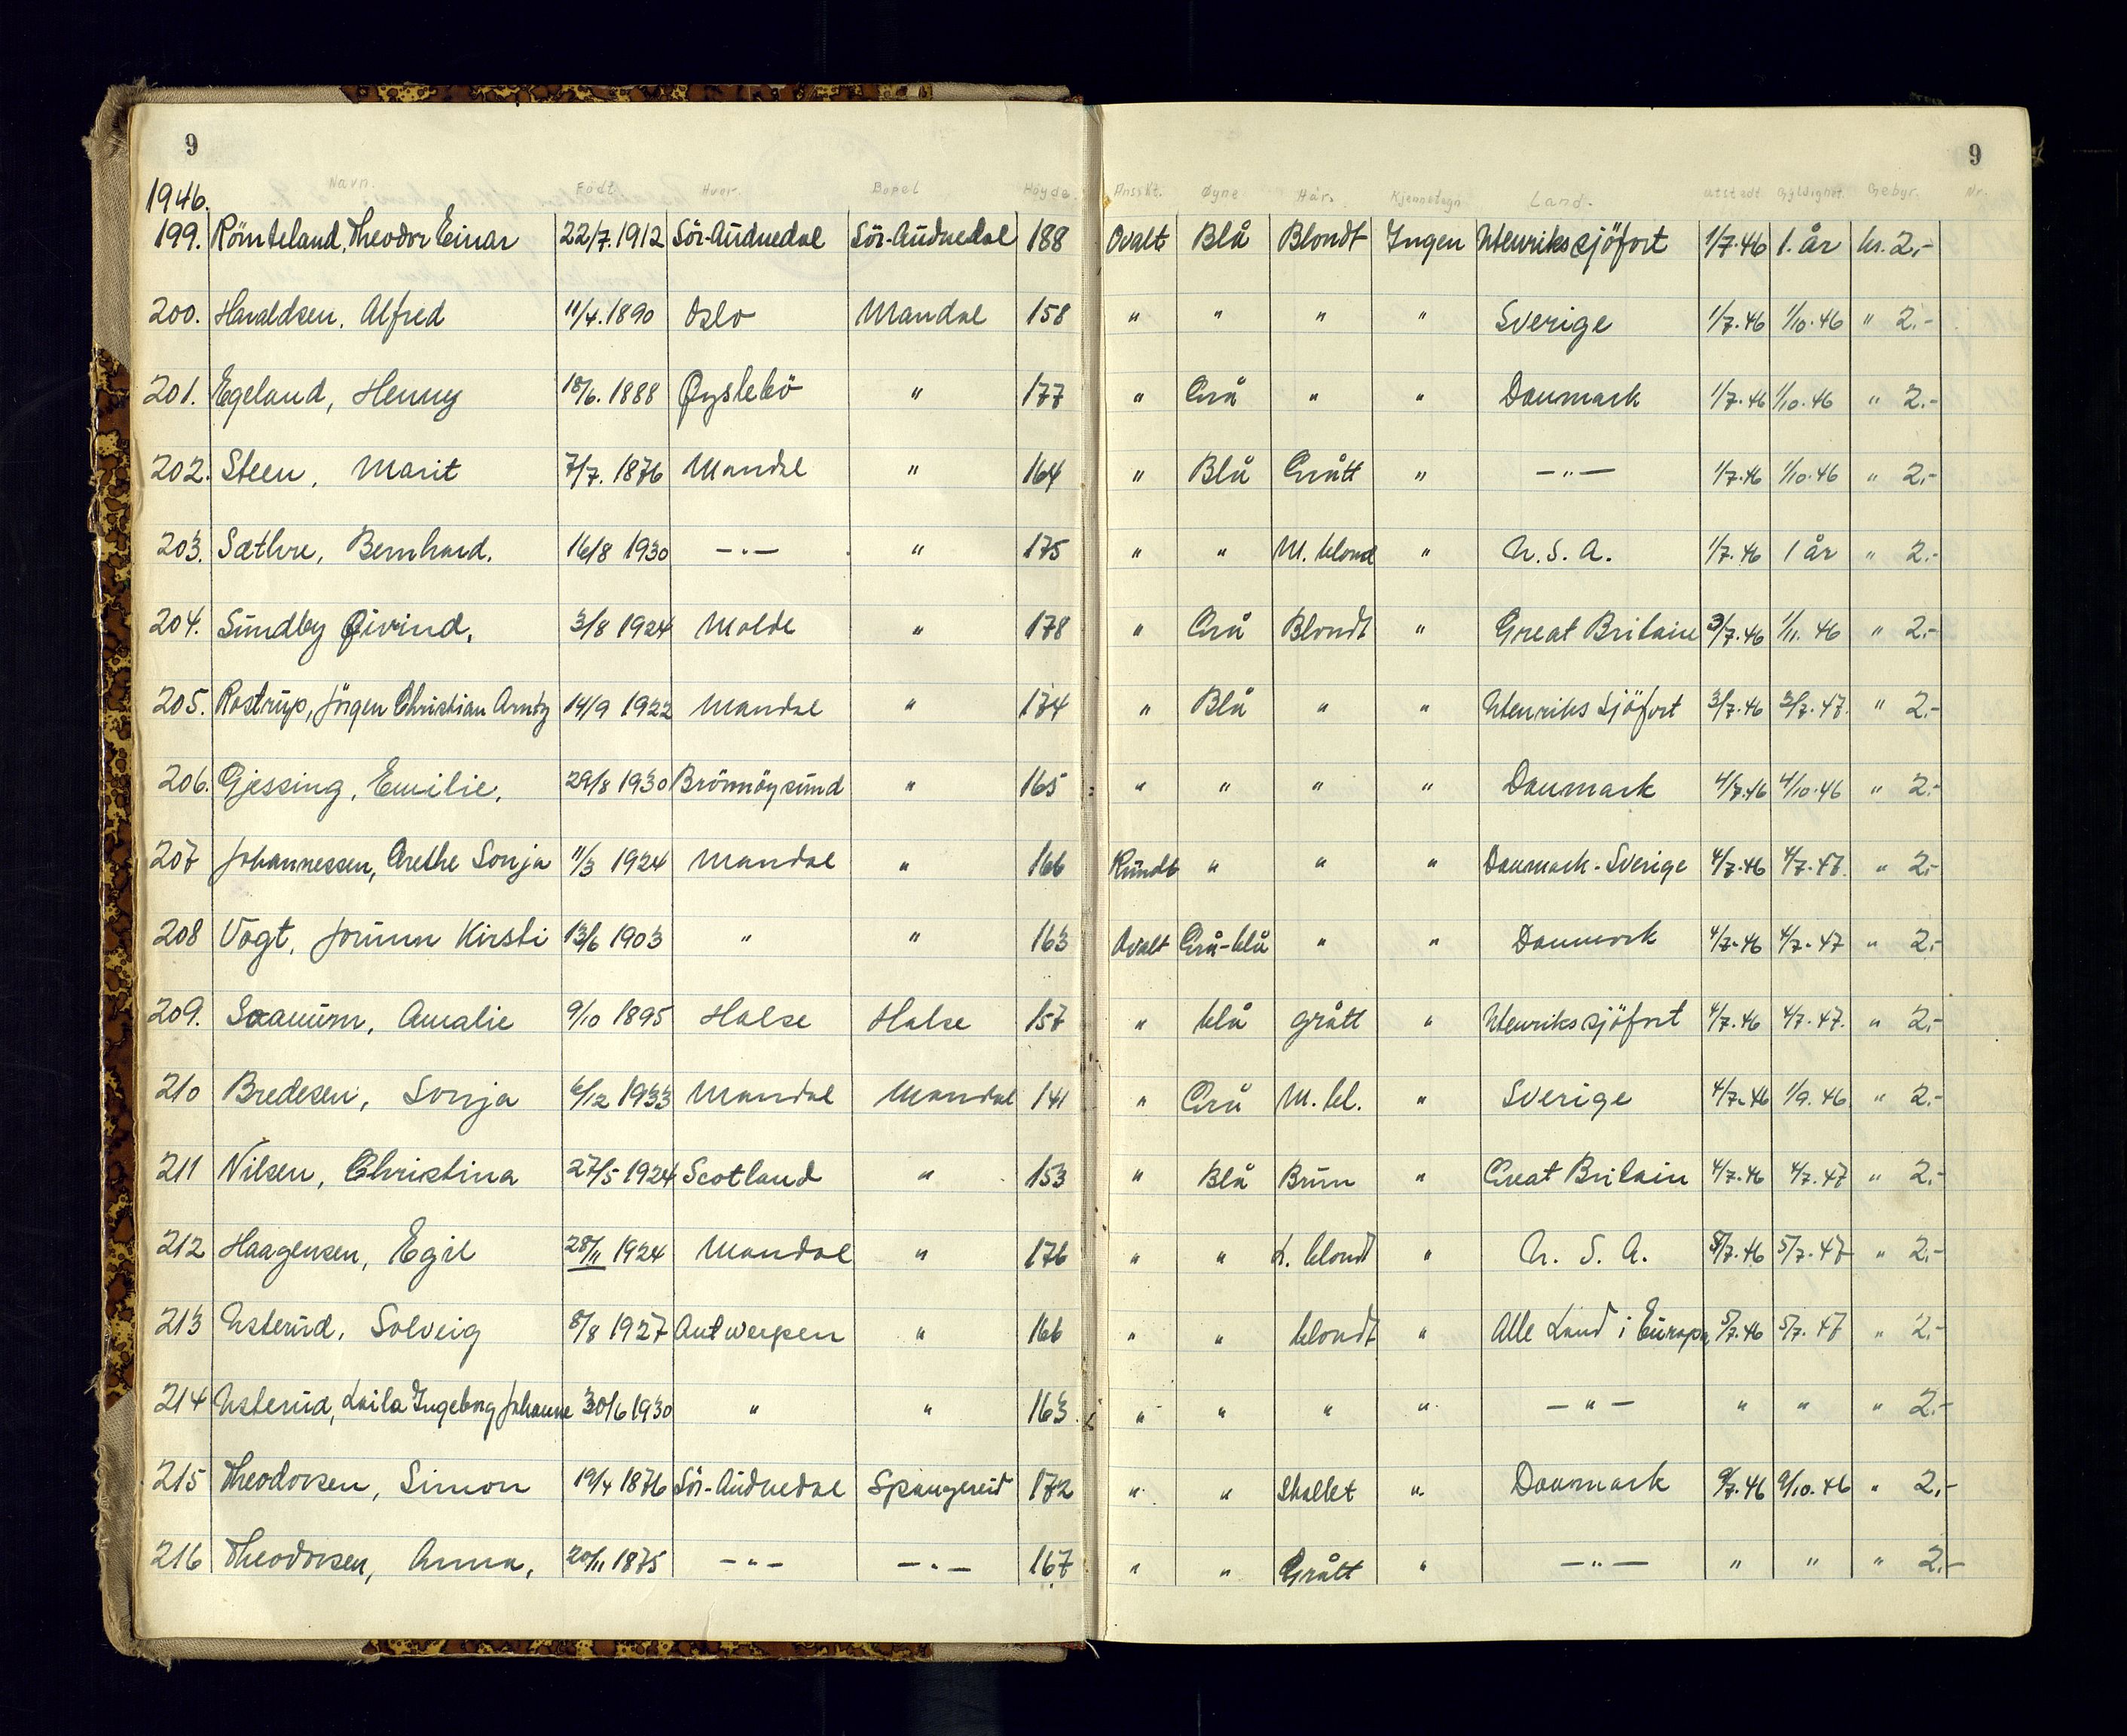 9 9
1946. Navn. Født. Hvor. Bopel Høyde. Ansikt. Øyne Hår. Kjennetegn Land. utstedt Gyldighet. Gebyr. Nr.
199. Römteland, Theodor Einar 22/7.1912 Sör-Audnedal Sör-Audnedal 188 Ovalt Blå Blondt Ingen Utenrikssjöfort 1/7.46 1. år kr. 2,-
200. Haraldsen, Alfred 11/4.1890 Oslo Mandal 158 " " " " Sverige 1/7.46 1/10.46 " 2.-
201. Egeland, Henny 18/6.1888 Øyslebö " 177 " Grå " " Danmark 1/7.46 1/10.46 " 2.-
202. Steen, Marit 7/7.1876 Mandal " 164 " Blå Grått " —"— 1/7.46 1/10.46 " 2,-
203. Sæthre, Bernhard. 16/8 1930 —"— " 175 " " M. blond " U.S.A. 1/7.46 1 år " 2.-
204. Sundby Øivind, 3/8 1924 Molde " 178 " Grå Blondt " Great Britain 3/7.46 1/11.46 " 2,-
205. Rostrup, Jörgen Christian Arntz 14/9 1922 Mandal " 174 " Blå " " Utenriks Sjöfort 3/7.46 3/7.47. " 2,-
206. Gjessing, Emilie, 29/8 1930 Brönnöysund " 165 " " " " Danmark 4/7.46 4/10.46 " 2.-
207 Johannessen, Grethe Sonja 11/3 1924 Mandal " 166 Rundt " " " Danmark-Sverige 4/7.46 4/7.47. " 2,-
208 Vogt, Jorunn Kirsti 13/6 1903 " " 163 Ovalt Grå-blå " " Danmark 4/7.46 4/7.47 " 2,-
209. Saanum, Amalie 9/10 1895 Halse Halse 157 " blå grått " Utenrikssjöfort 4/7.46 4/7.47. " 2,-
210 Bredesen, Sonja 6/12 1933 Mandal Mandal 141 " Grå M. bl. " Sverige 4/7.46 1/9.46 " 2.-
211 Nilsen, Christina 27/5 1924 Scotland " 153 " Blå Brun " Great Britain 4/7.46 4/7.47 " 2,-
212 Haagensen, Egil 28/11 1924 Mandal " 176 " " L. blond " U. S. A. 5/7.46 5/7.47 " 2,-
213 Usterud, Solveig 8/8 1927 Antwerpen " 166 " " blondt " Alle Land i Europa, 5/7.46 5/7.47 " 2,-
214 Usterud, Laila Ingeborg Johanne 30/6 1930 " " 163 " " " " —"— " " " 2.-
215 Theodorsen, Simon 19/4 1876 Sör-Audnedal Spangereid 172 " " Skallet " Danmark 9/7.46 9/10.46 " 2,-
216 Theodorsen, Anna, 20/11 1875 —"— —"— 167 " " Grått " —"— " " " 2.-